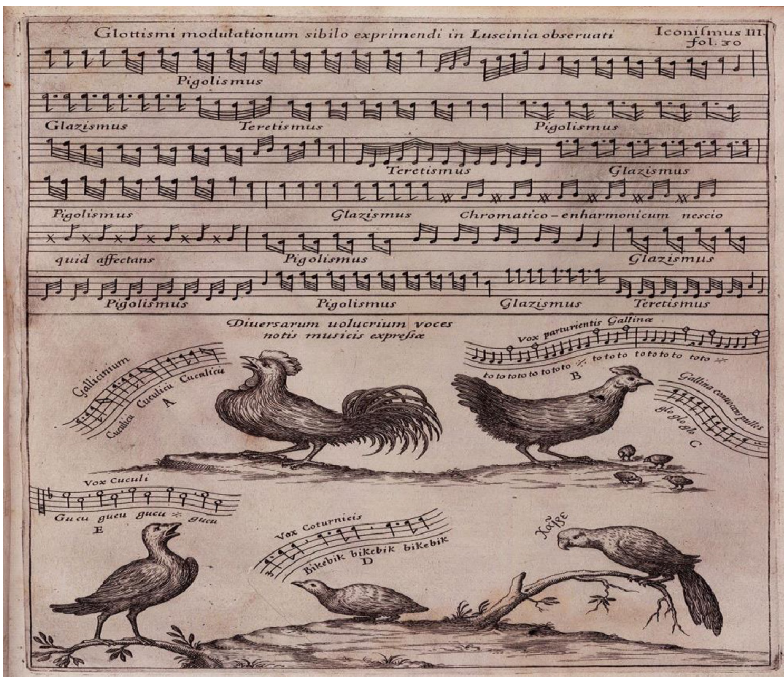 Glottismi modulationum sibilo exprimendi in Luscinia observati
Iconismus III.
fol. 30
Pigolismus
Glazismus Teretismus Pigolismus
Teretismus Glazismus
Pigolismus Glazismus Chromatico-enharmonicum nescio
quid affectans Pigolismus Glazismus
Pigolismus Pigolismus Glazismus Teretismus
Diversarum uolucrium voces
notis musicis expressæ
Gallicinium
Cuculicu Cuculicu Cuculicu
A
Vox parturientis Gallinæ
to to to to to to to to to to to to to to to to
B
Gallina convocans pullos
glo glo glo
C
Vox Cuculi
Gu cu gucu gucu gucu
E
Vox Coturnicis
Bikebik bikebik bikebik
D
Χαῖρε